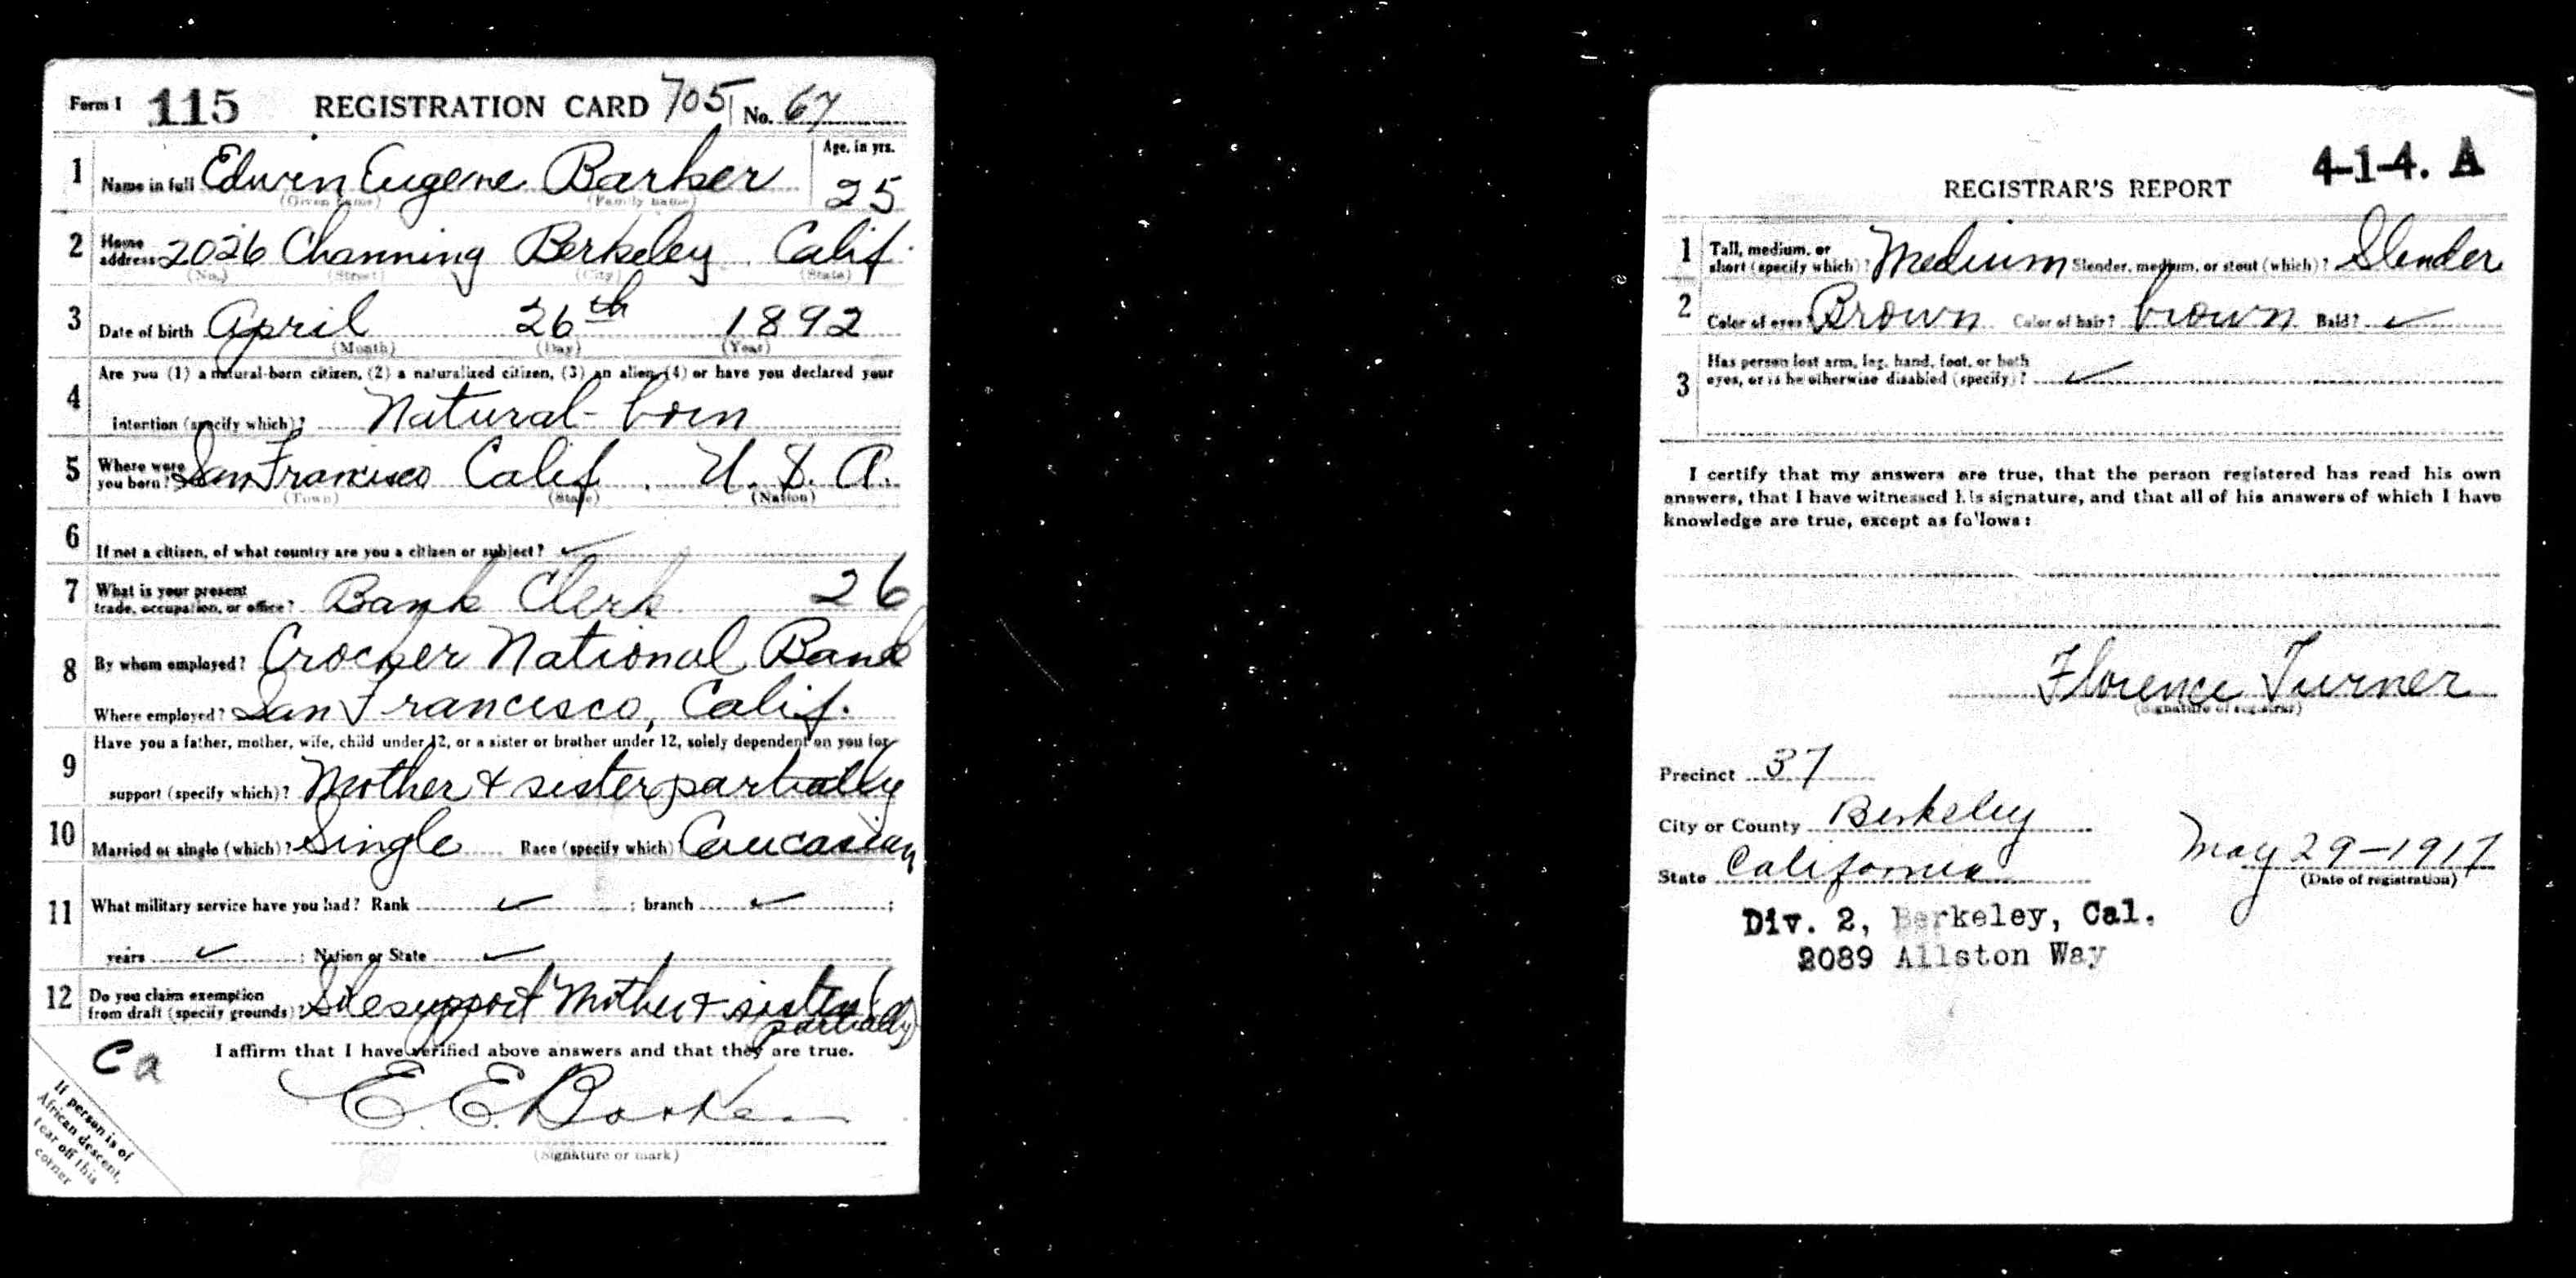 Form 1 115 REGISTRATION CARD 705 No. 67
1 Name in full Edwin Eugene Barker Age, in yrs. 25
(Given name) (Family name)
2 Home address 2026 Channing Berkeley Calif.
(No.) (Street) (City) (State)
3 Date of birth April 26th 1892
(Month) (Day) (Year)
4 Are you (1) a natural-born citizen, (2) a naturalized citizen, (3) an alien, (4) or have you declared your
intention (specify which)? Natural-born
5 Where were you born? San Francisco Calif. U. S. A.
(Town) (State) (Nation)
6 If not a citizen, of what country are you a citizen or subject? ✓
7 What is your present trade, occupation, or office? Bank Clerk 26
8 By whom employed? Crocker National Bank
Where employed? San Francisco, Calif.
9 Have you a father, mother, wife, child under 12, or a sister or brother under 12, solely dependent on you for
support (specify which)? Mother & sister partially
10 Married or single (which)? Single Race (specify which) Caucasian
11 What military service have you had? Rank ✓ ; branch ✓ ;
years ✓ ; Nation or State ✓
12 Do you claim exemption from draft (specify grounds)? support Mother & sister (partially)
I affirm that I have verified above answers and that they are true.
Ca
E. E. Barker
(Signature or mark)
If person is of
African descent,
tear off this
corner
4-1-4. A
REGISTRAR'S REPORT
1 Tall, medium, or short (specify which)? Medium Slender, medium, or stout (which)? Slender
2 Color of eyes? Brown Color of hair? brown Bald? ✓
3 Has person lost arm, leg, hand, foot, or both
eyes, or is he otherwise disabled (specify)? ✓
I certify that my answers are true, that the person registered has read his own
answers, that I have witnessed his signature, and that all of his answers of which I have
knowledge are true, except as follows:
Florence Turner
(Signature of registrar)
Precinct 37
City or County Berkeley
State California May 29-1917
(Date of registration)
Div. 2, Berkeley, Cal.
2089 Allston Way